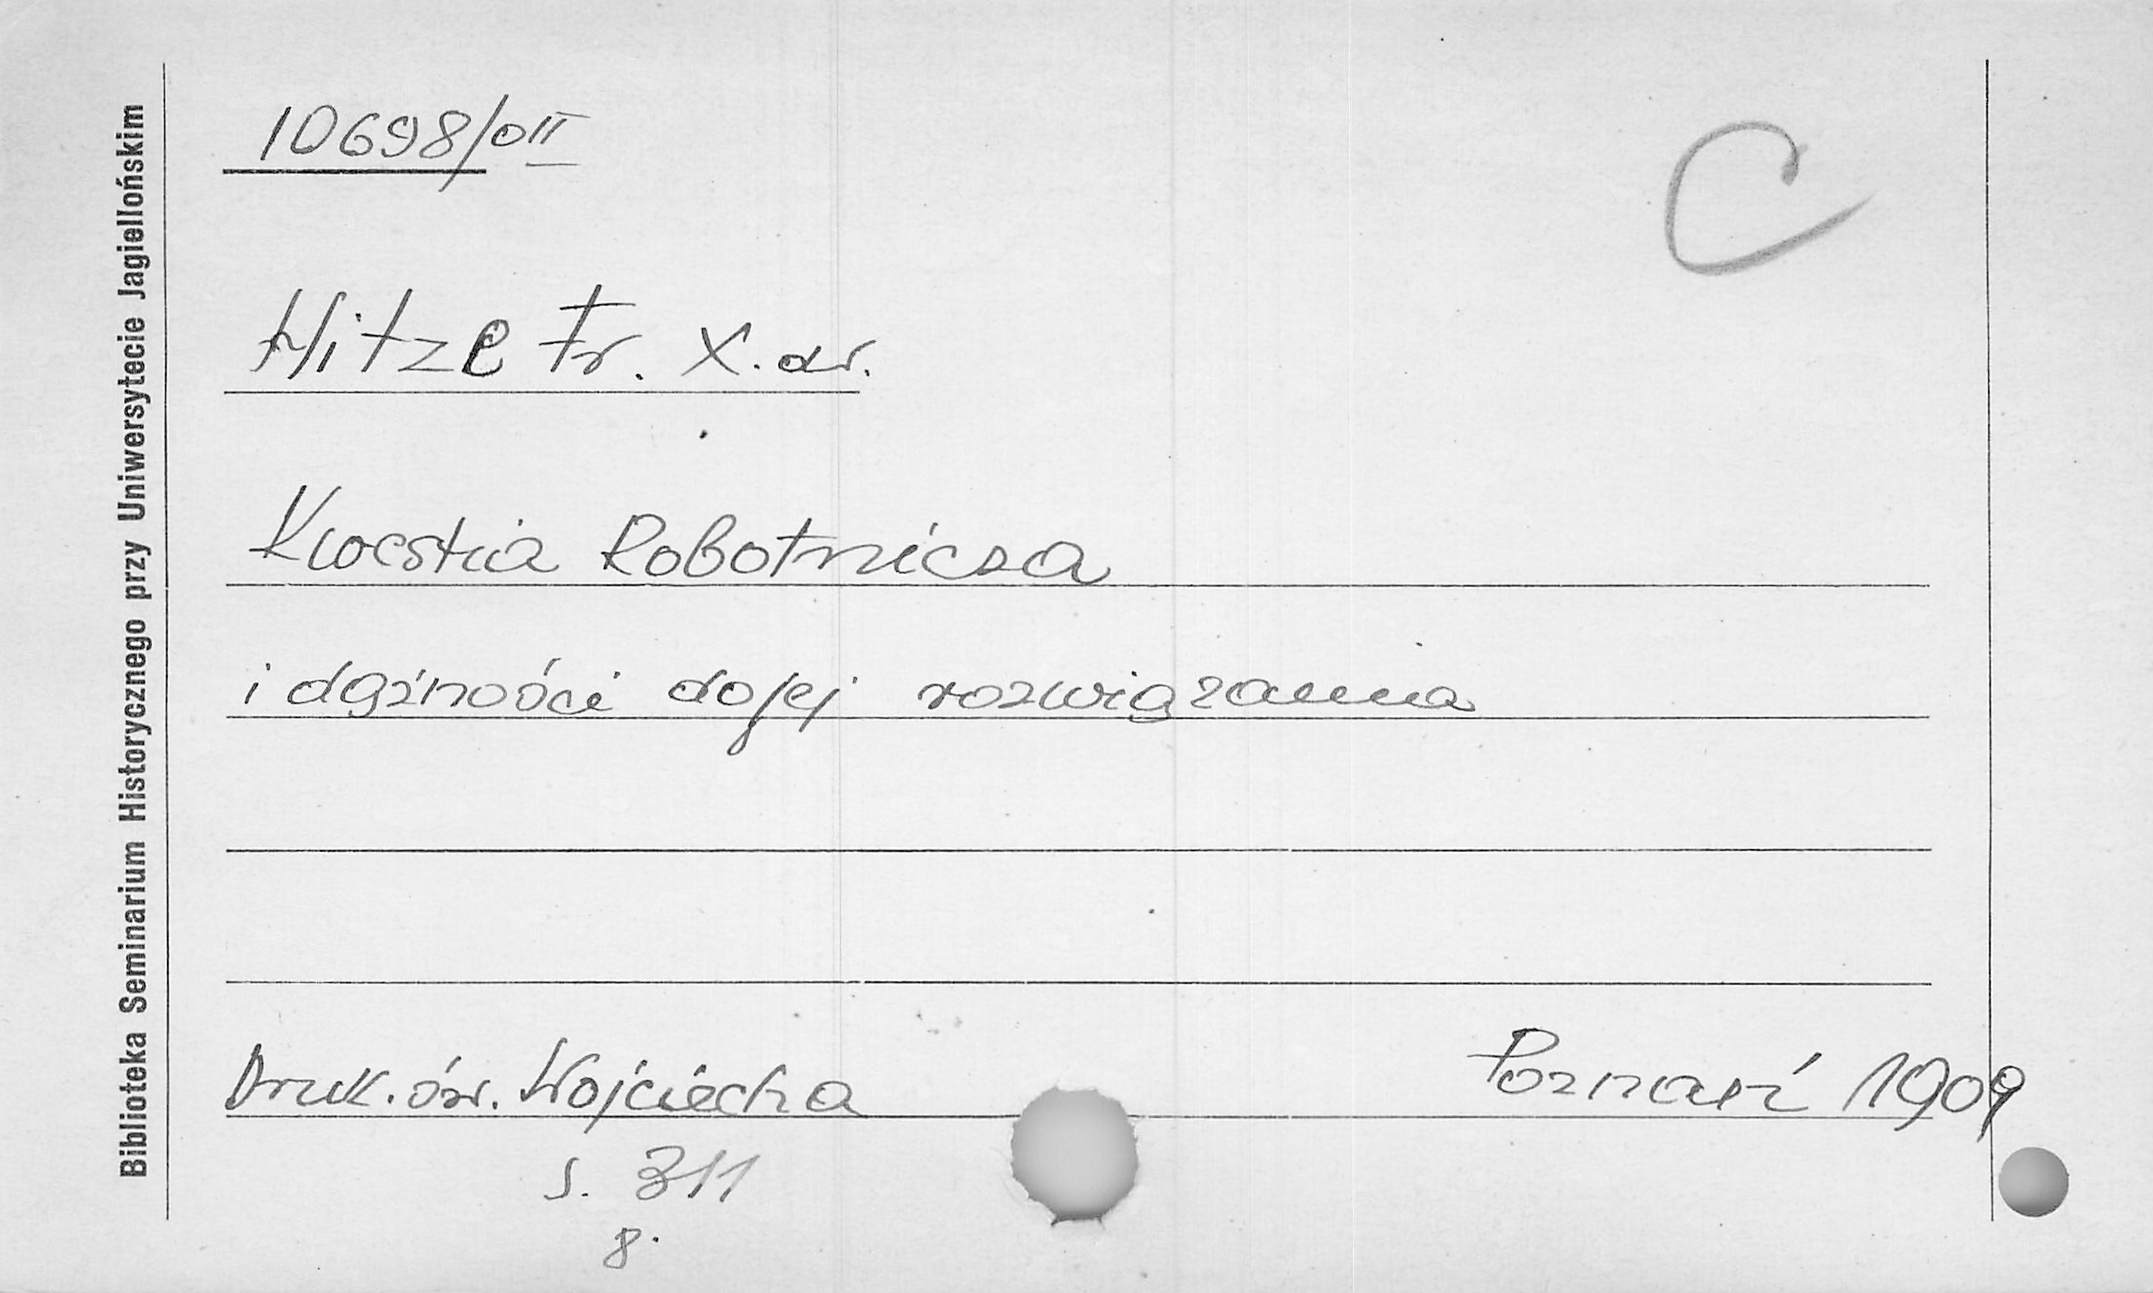 Biblioteka Seminarium Historycznego przy Uniwersytecie Jagiellońskim
10698/OII
C
Hitze Fr. X. dr.
Kwestia Robotnicza
i dążności do jej rozwiązania
Druk. św. Wojciecha
Poznań 1909
s. 311
8.